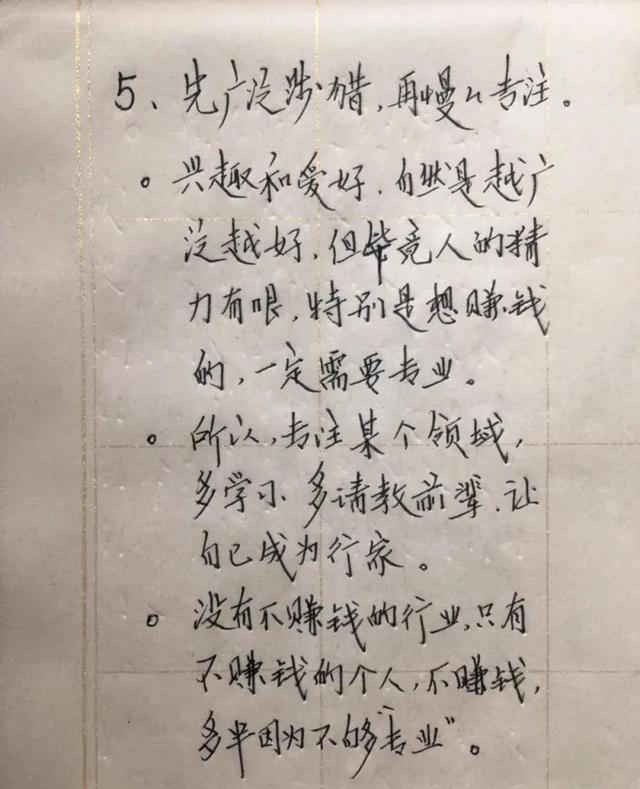 5、先广泛涉猎,再慢々专注。
。兴趣和爱好,自然是越广
泛越好,但毕竟人的精
力有限,特别是想赚钱
的,一定需要专业。
。所以,专注某个领域,
多学习、多请教前辈,让
自己成为行家。
。没有不赚钱的行业,只有
不赚钱的个人,不赚钱,
多半因为不够“专业”。